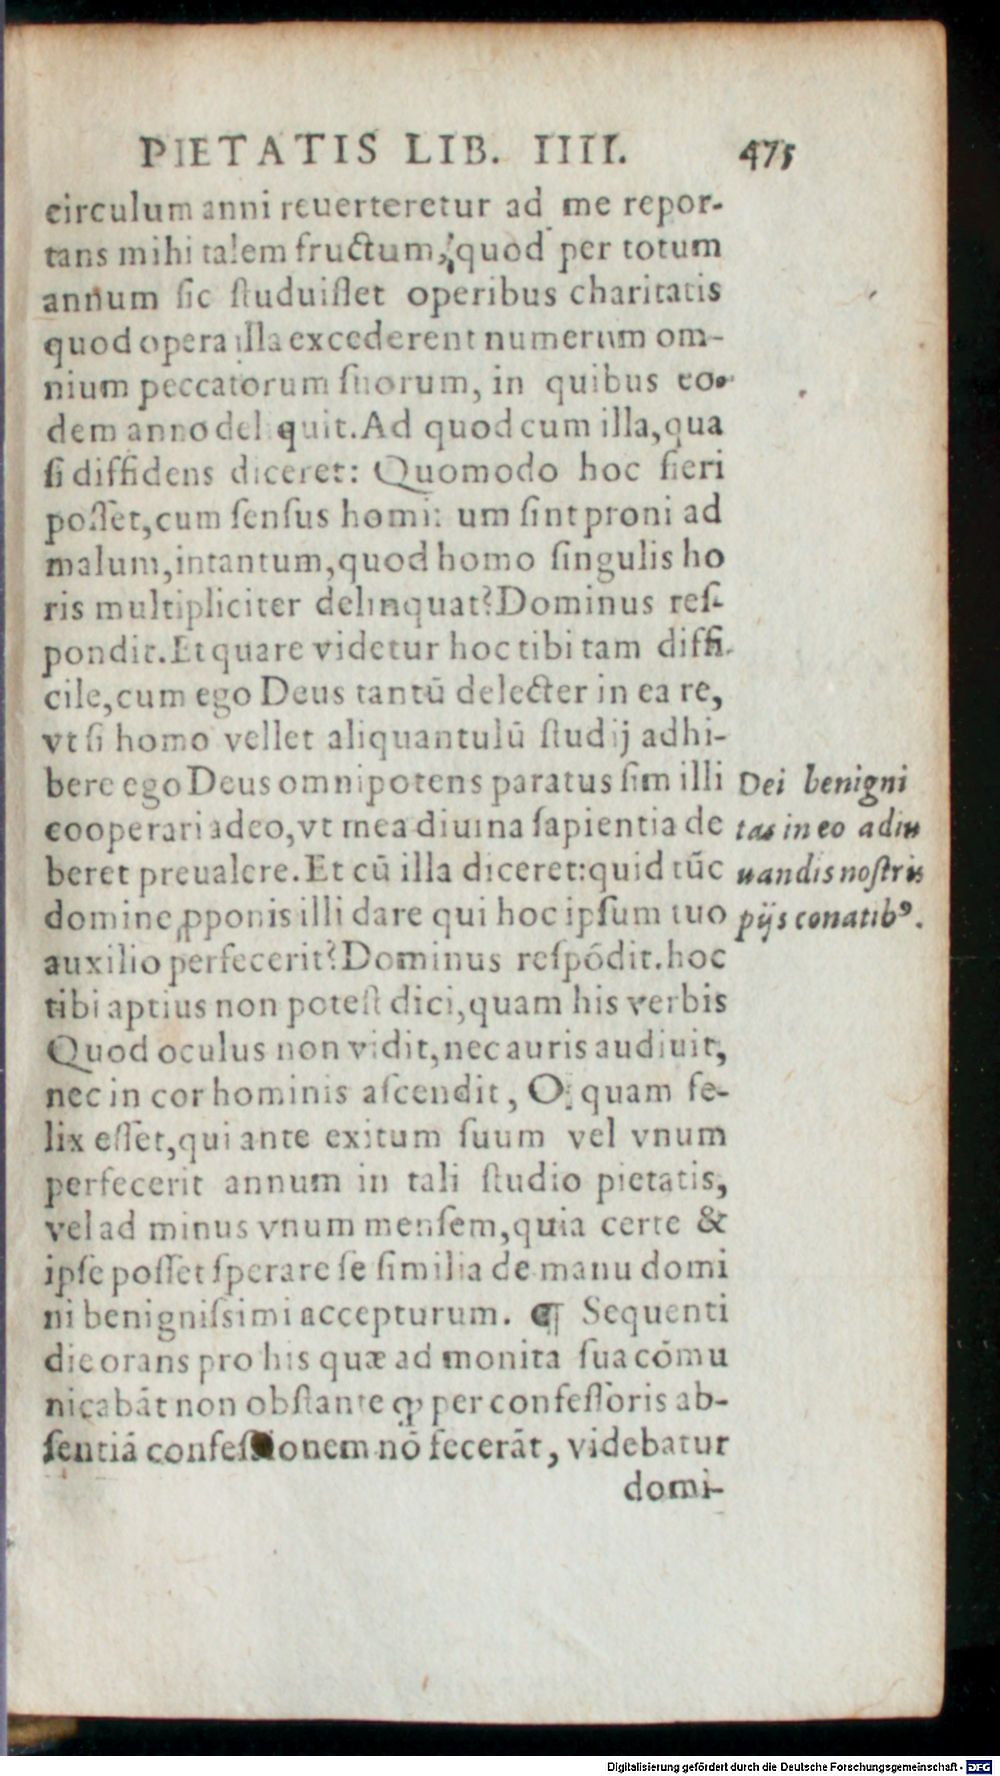 PIETATIS LIB. IIII. 475
circulum anni reuerteretur ad me repor-
tans mihi talem fructum, quod per totum
annum sic studuisset operibus charitatis
quod opera illa excederent numerum om-
nium peccatorum suorum, in quibus eo-
dem anno deliquit. Ad quod cum illa, qua
si diffidens diceret: Quomodo hoc fieri
posset, cum sensus hominum sint proni ad
malum, intantum, quod homo singulis ho
ris multipliciter delinquat? Dominus res-
pondit. Et quare videtur hoc tibi tam diffi-
cile, cum ego Deus tantū delecter in ea re,
vt si homo vellet aliquantulū studij adhi-
bere ego Deus omnipotens paratus sim illi
cooperari adeo, vt mea diuina sapientia de
beret preualere. Et cū illa diceret: quid tūc
domine ꝓponis illi dare qui hoc ipsum tuo
auxilio perfecerit? Dominus respōdit. hoc
tibi aptius non potest dici, quam his verbis
Quod oculus non vidit, nec auris audiuit,
nec in cor hominis ascendit, O quam fe-
lix esset, qui ante exitum suum vel vnum
perfecerit annum in tali studio pietatis,
vel ad minus vnum mensem, quia certe &
ipse posset sperare se similia de manu domi
ni benignissimi accepturum. ¶ Sequenti
die orans pro his quæ ad monita sua cōmu
nicabāt non obstante ꝙ per confessoris ab-
sentiā confessionem nō fecerāt, videbatur
domi-
Dei benigni
tas in eo adiu
uandis nostris
pijs conatibꝰ.
Digitalisierung gefördert durch die Deutsche Forschungsgemeinschaft - DFG